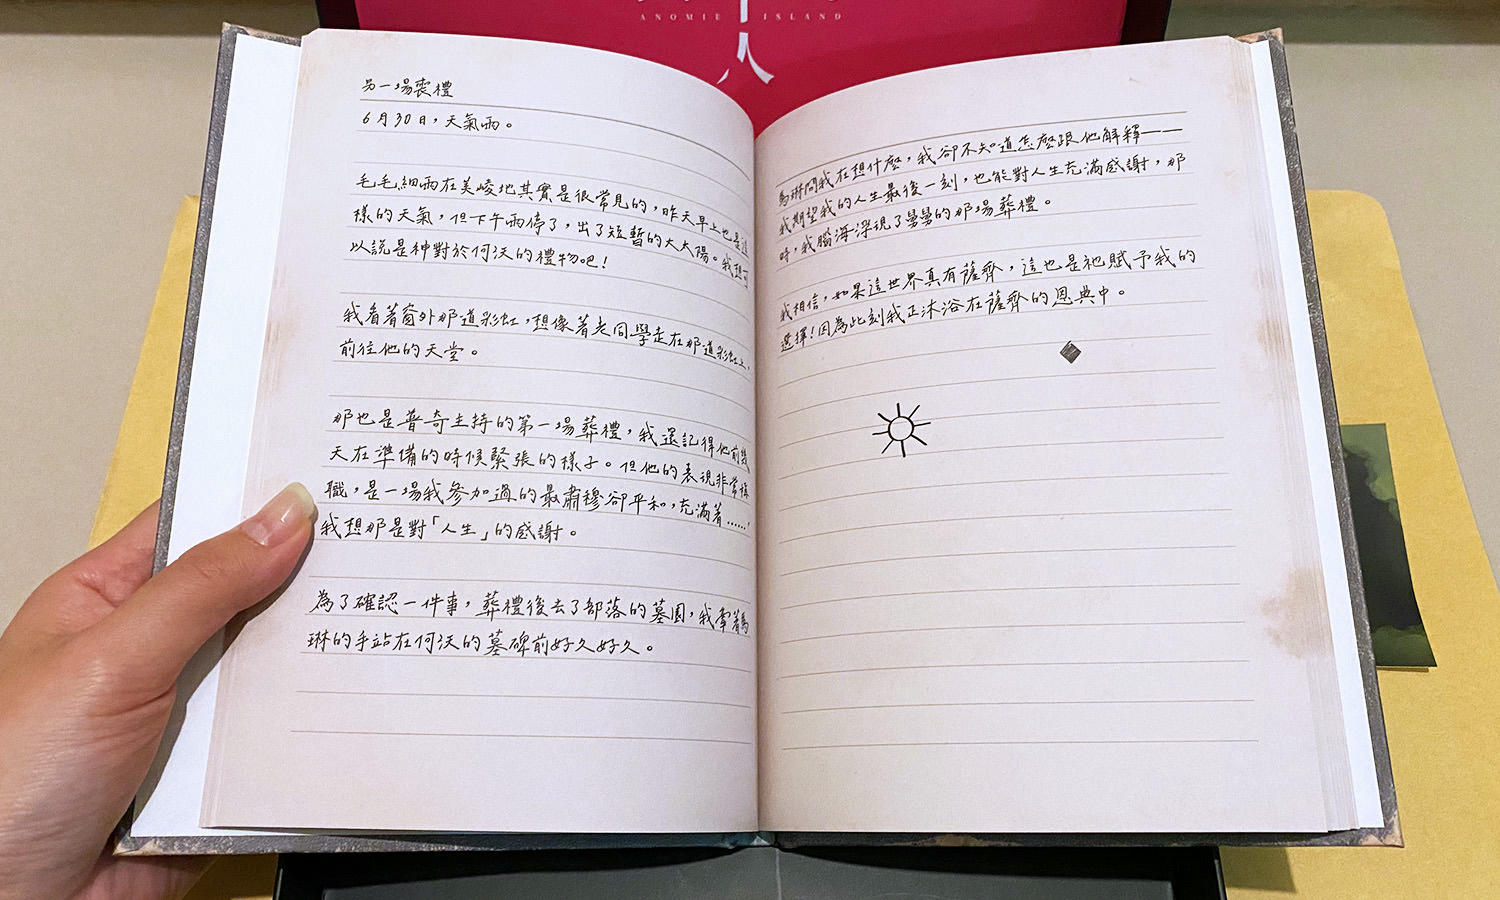 ANOMIE ISLAND
人
另一場喪禮
6月30日，天氣雨。
毛毛細雨在美崚地其實是很常見的，昨天早上也是這
樣的天氣，但下午雨停了，出了短暫的大太陽。我想可
以說是神對於何沃的禮物吧！
我看著窗外那道彩虹，想像著老同學走在那道彩虹上，
前往他的天堂。
那也是普奇主持的第一場葬禮，我還記得他前幾
天在準備的時候緊張的樣子。但他的表現非常稱
職，是一場我參加過的最肅穆卻平和，充滿著……，
我想那是對「人生」的感謝。
為了確認一件事，葬禮後去了部落的墓園，我牽著馬
琳的手站在何沃的墓碑前好久好久。
馬琳問我在想什麼，我卻不知道怎麼跟他解釋——
我期望我的人生最後一刻，也能對人生充滿感謝，那
時，我腦海浮現了舅舅的那場葬禮。
我相信，如果這世界真有薩齊，這也是祂賦予我的
選擇！因為此刻我正沐浴在薩齊的恩典中。